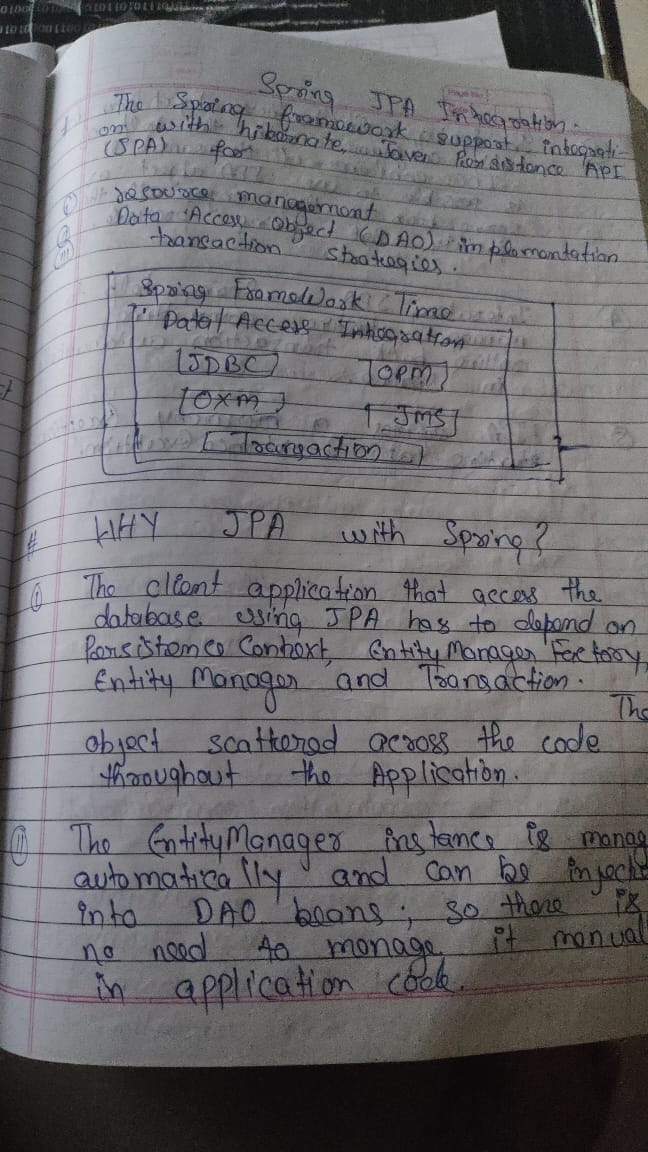 Spring JPA Integration.
The Spring framework support integrati-
on with hibernate, Java Persistance API
(JPA) for
(i) resource management
(ii) Data Access Object (DAO) implementation
(iii) transaction strategies.
Spring FrameWork Time
Data/Access Integration
JDBC ORM
OXM JMS
Transaction
# WHY JPA with Spring?
(i) The client application that access the
database using JPA has to depend on
Persistence Context, Entity Manager Factory,
Entity Manager and Transaction.
The
object scattered across the code
throughout the Application.
(ii) The EntityManager instance is manag
automatically and can be injecte
into DAO beans; so there is
no need to manage it manual
in application code.